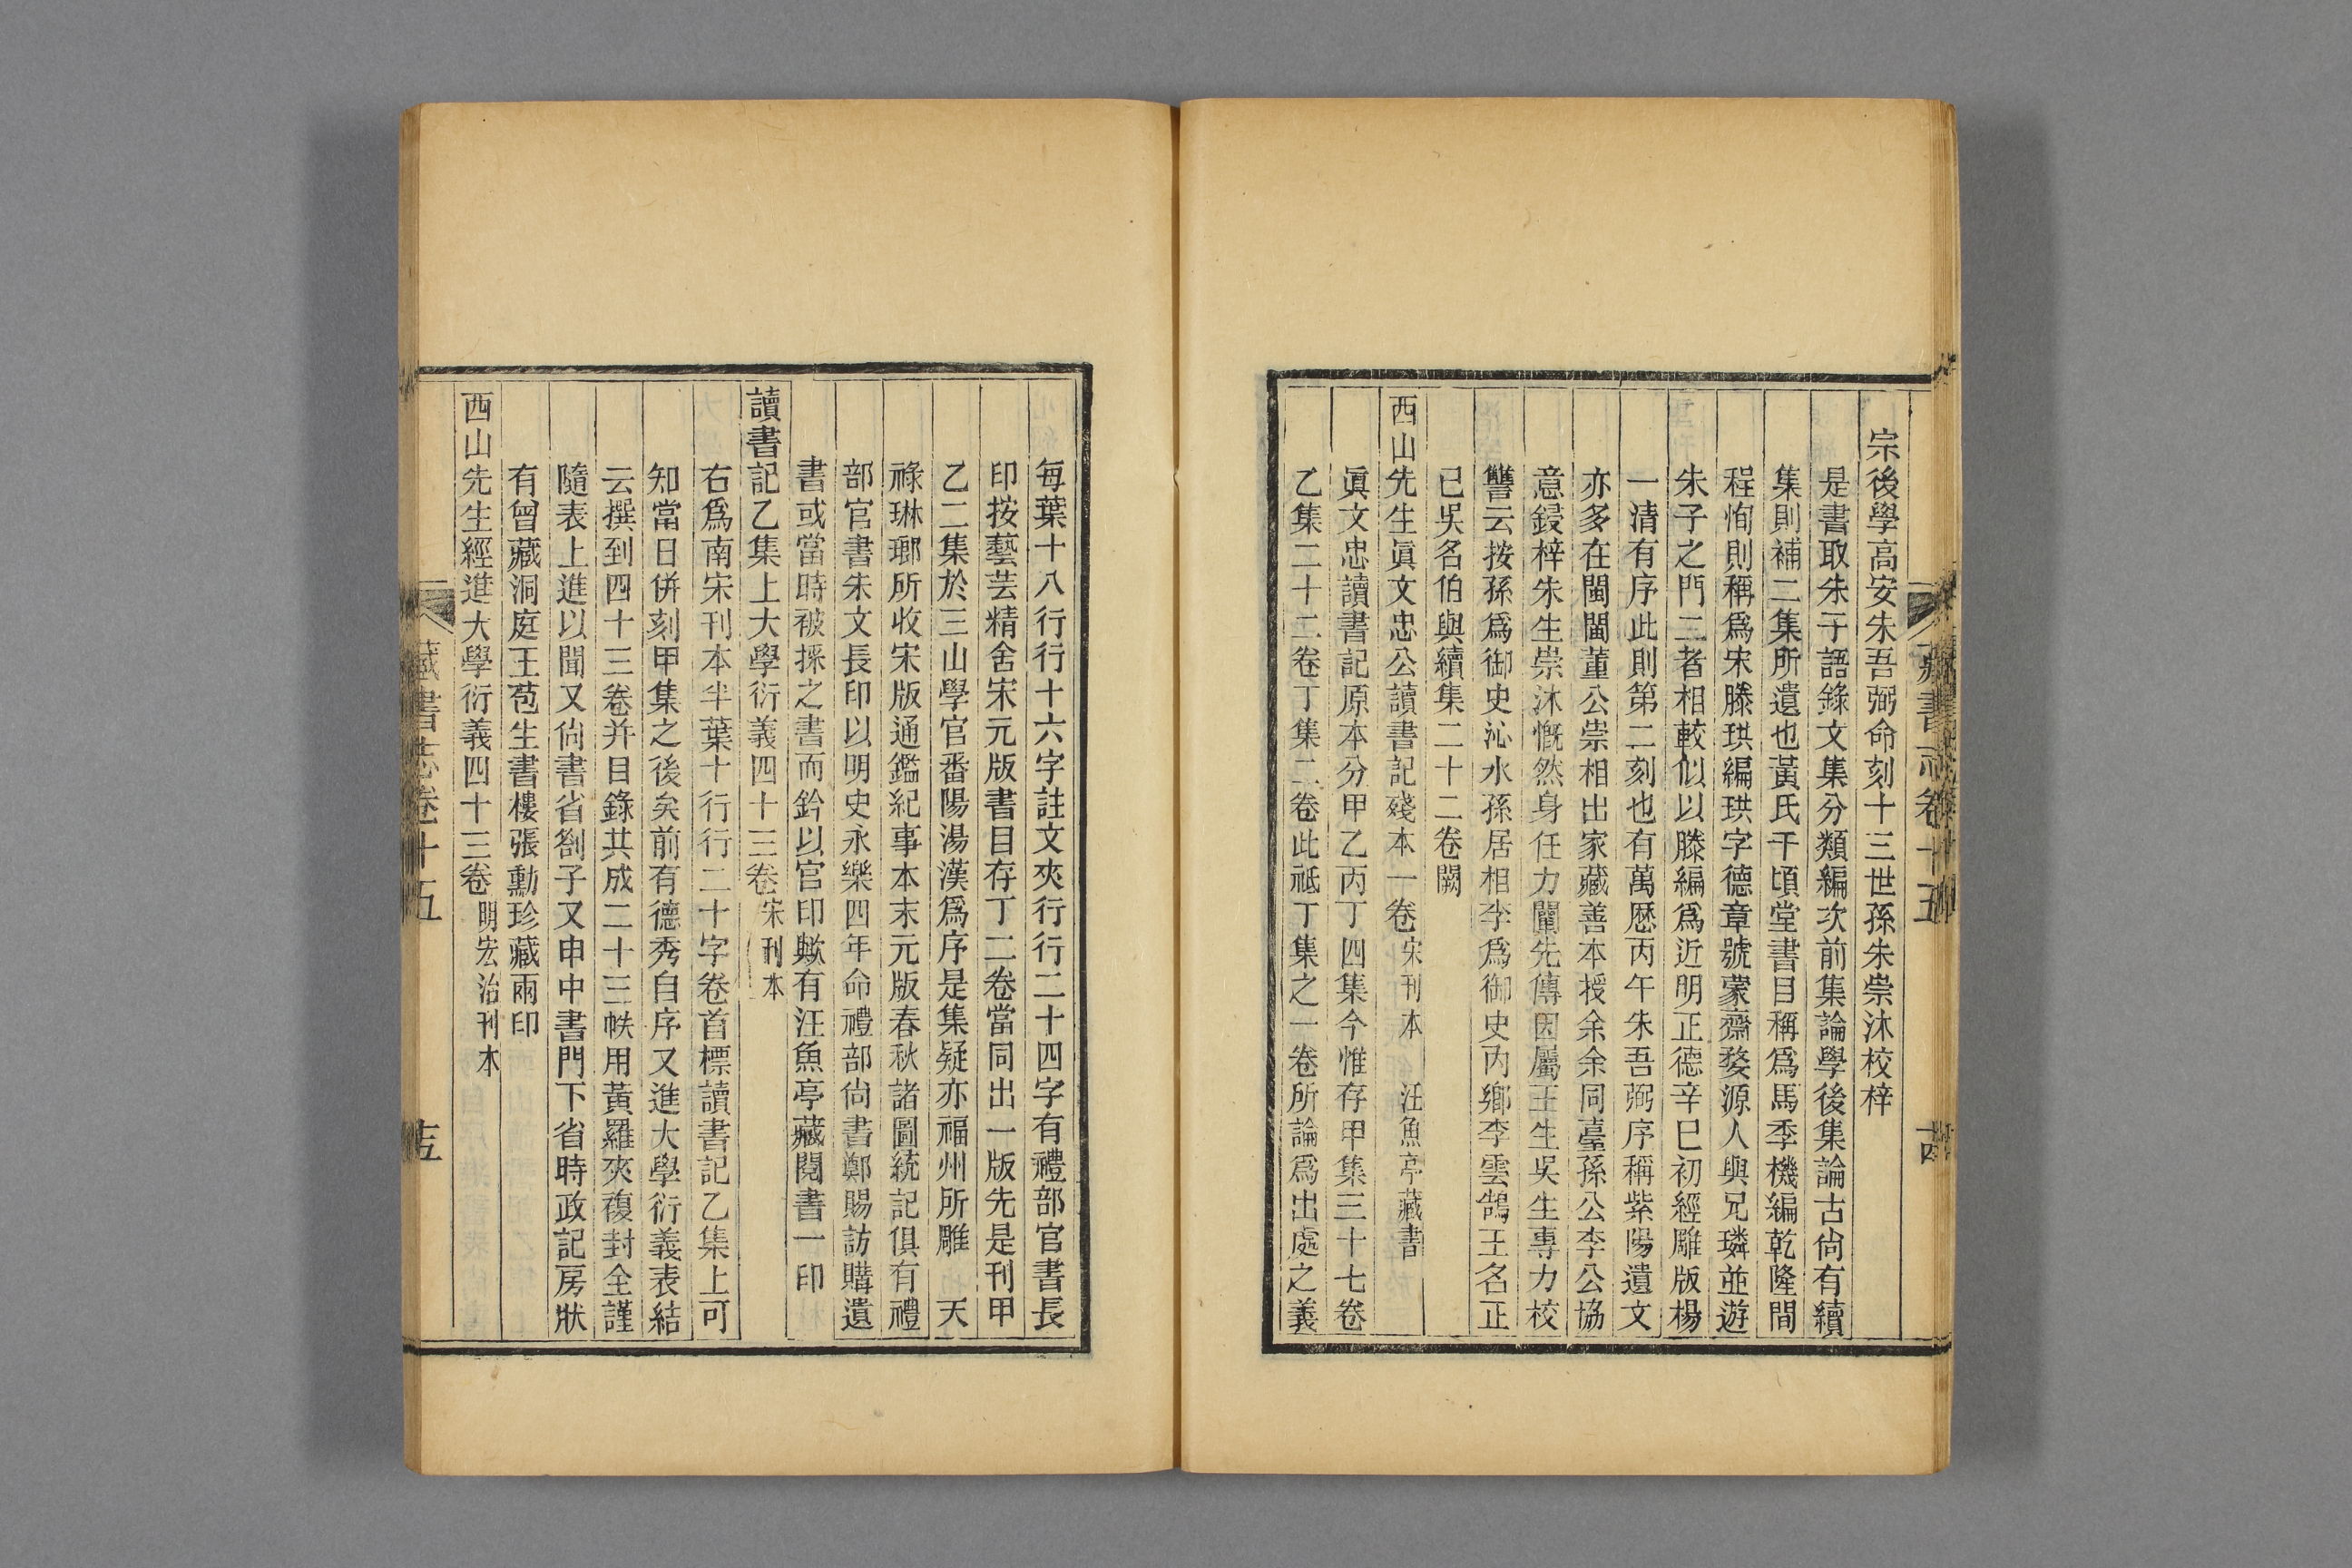 宗後學高安朱吾弼命刻十三世孫朱崇沐校梓
是書取朱子語錄文集分類編次前集論學後集論古尙有續
集則補二集所遺也黃氏千頃堂書目稱爲馬季機編乾隆間
程恂則稱爲宋滕珙編珙字德章號蒙齋婺源人與兄璘並遊
朱子之門三者相較似以滕編爲近明正德辛巳初經雕版楊
一淸有序此則第二刻也有萬歷丙午朱吾弼序稱紫陽遺文
亦多在閩閩董公崇相出家藏善本授余余同臺孫公李公協
意鋟梓朱生崇沐慨然身任力闡先傳因屬王生吳生專力校
讐云按孫爲御史沁水孫居相李爲御史內鄉李雲鵠王名正
已吳名伯與續集二十二卷闕
西山先生眞文忠公讀書記殘本一卷 宋刊本 汪魚亭藏書
眞文忠讀書記原本分甲乙丙丁四集今惟存甲集三十七卷
乙集二十二卷丁集二卷此祗丁集之一卷所論爲出處之義
藏書志卷十五 十四
每葉十八行行十六字註文夾行行二十四字有禮部官書長
印按藝芸精舍宋元版書目存丁二卷當同出一版先是刊甲
乙二集於三山學官番陽湯漢爲序是集疑亦福州所雕 天
祿琳瑯所收宋版通鑑紀事本末元版春秋諸圖統記俱有禮
部官書朱文長印以明史永樂四年命禮部尙書鄭賜訪購遺
書或當時被採之書而鈐以官印歟有汪魚亭藏閱書一印
讀書記乙集上大學衍義四十三卷 宋刊本
右爲南宋刊本半葉十行行二十字卷首標讀書記乙集上可
知當日併刻甲集之後矣前有德秀自序又進大學衍義表結
云撰到四十三卷并目錄共成二十三帙用黃羅夾複封全謹
隨表上進以聞又尙書省劄子又申中書門下省時政記房狀
有曾藏洞庭王苞生書樓張勳珍藏兩印
西山先生經進大學衍義四十三卷 明宏治刊本
藏書志卷十五 十五